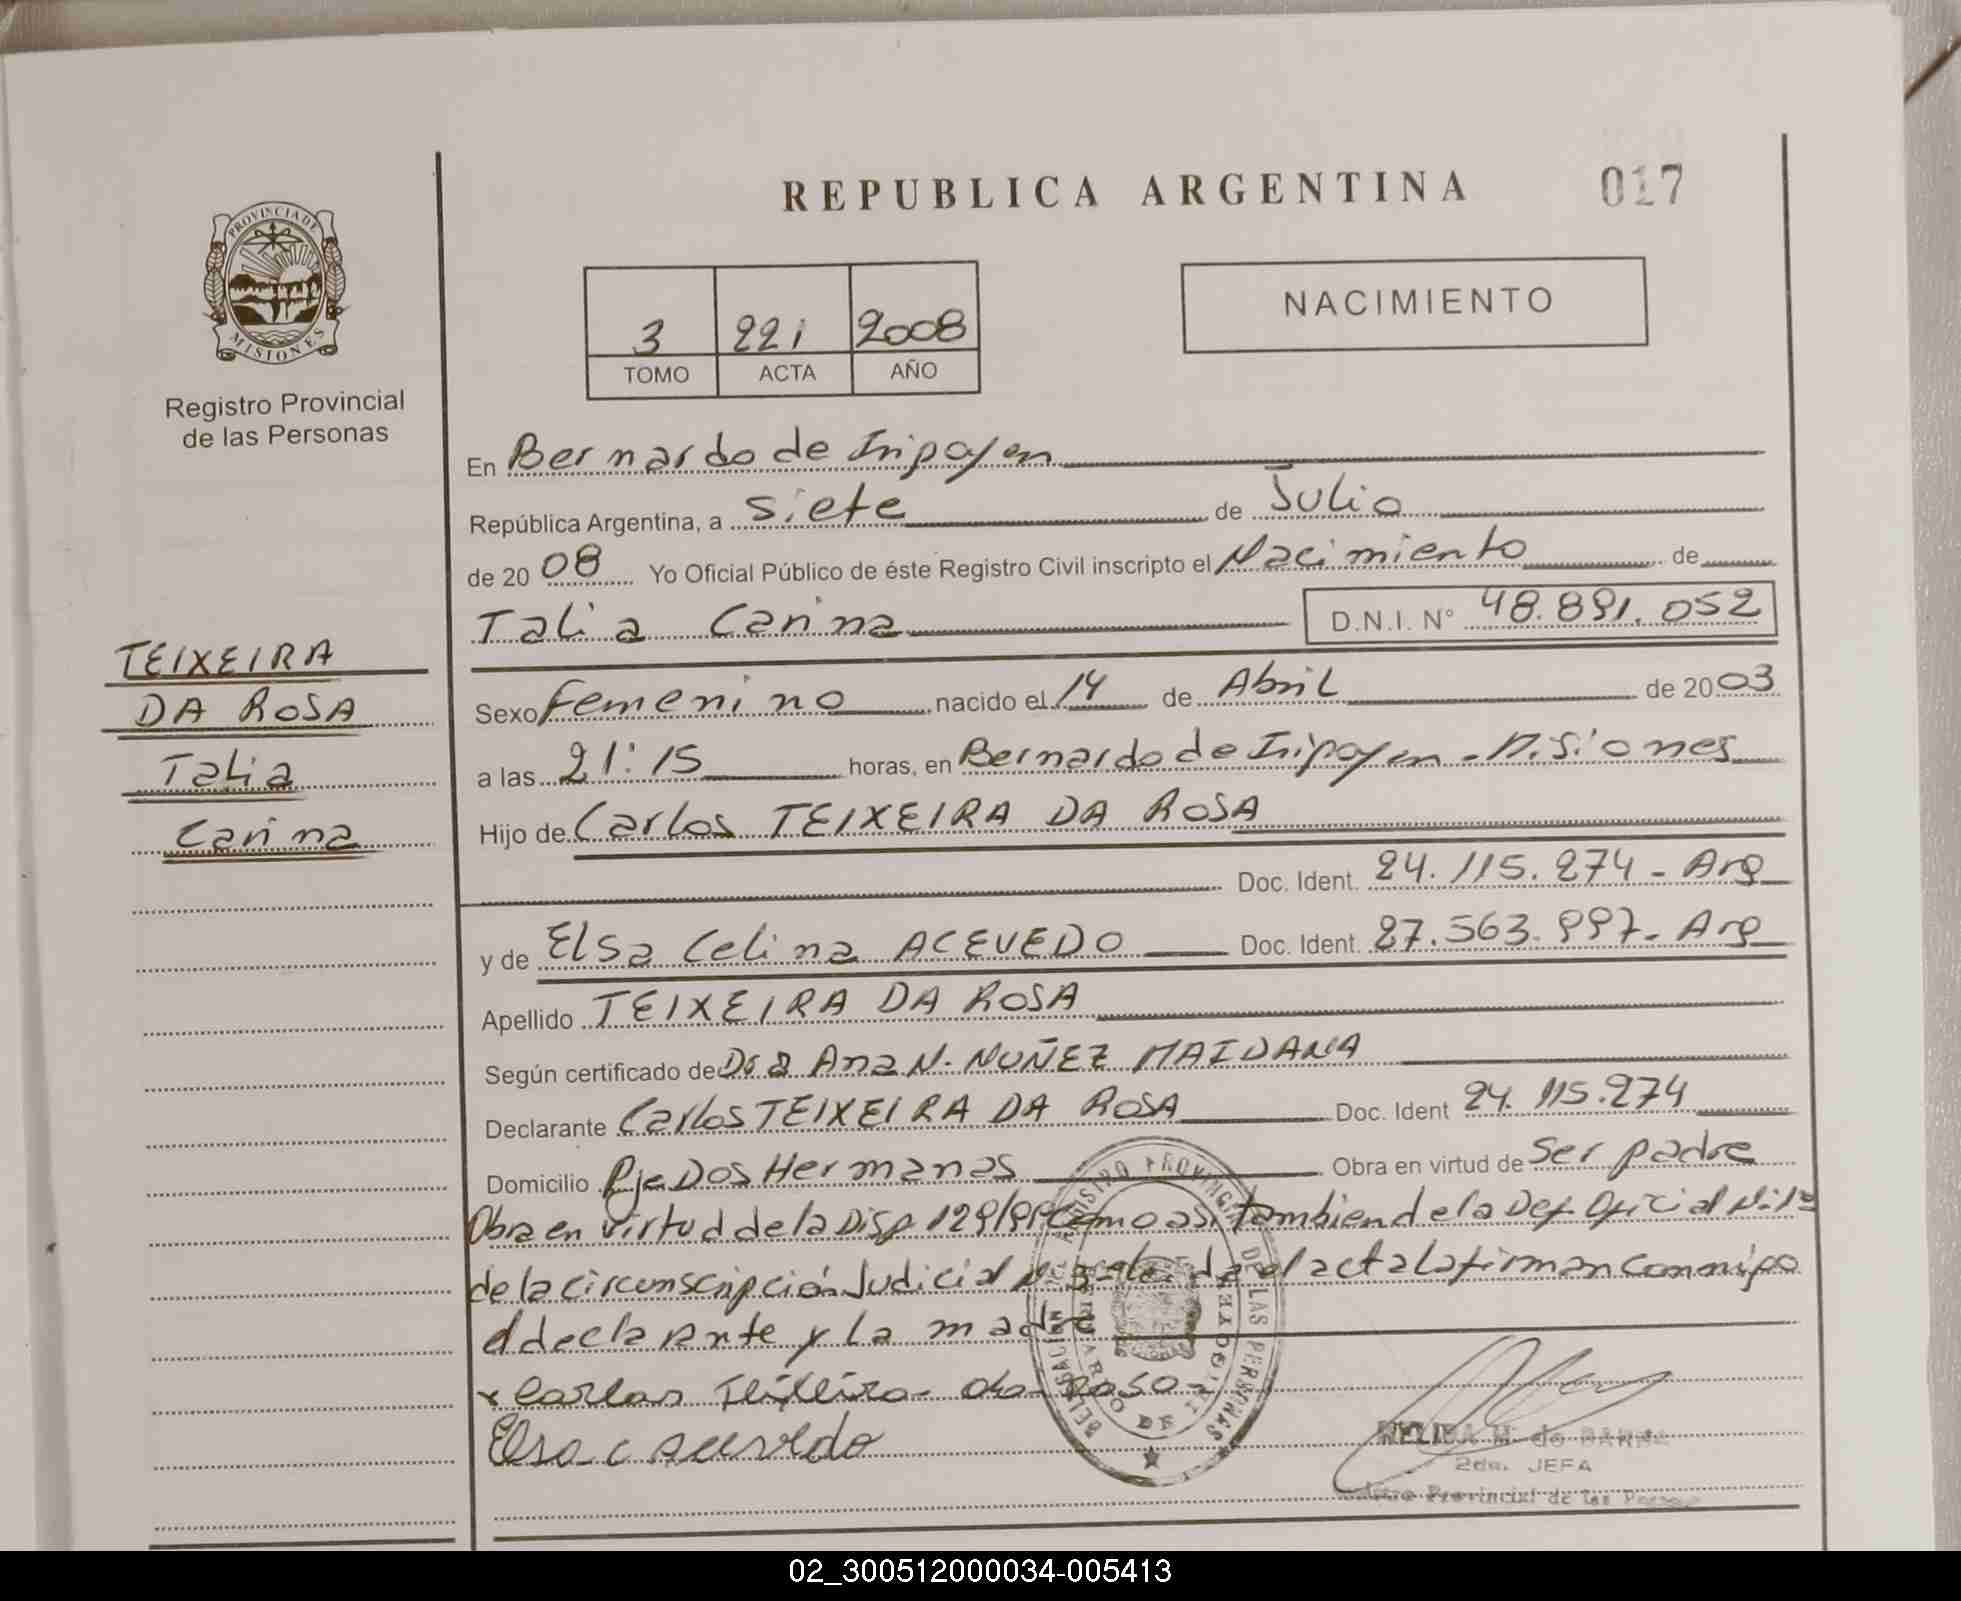 REPUBLICA ARGENTINA
017
PROVINCIA DE
MISIONES
Registro Provincial
de las Personas
3 221 2008
TOMO ACTA AÑO
NACIMIENTO
En Bernardo de Iripoyen
República Argentina, a siete de Julio
de 20 08 Yo Oficial Público de éste Registro Civil inscripto el Nacimiento de
Talia Carina D.N.I. N° 48.891.052
TEIXEIRA
DA ROSA
Talia
Carina
Sexo Femenino nacido el 14 de Abril de 2003
a las 21:15 horas, en Bernardo de Iripoyen - Misiones
Hijo de Carlos TEIXEIRA DA ROSA
Doc. Ident. 24.115.274 - Arg
y de Elsa Celina ACEVEDO Doc. Ident. 27.563.997 - Arg
Apellido TEIXEIRA DA ROSA
Según certificado de Dra Ana N. NUÑEZ MAIDANA
Declarante Carlos TEIXEIRA DA ROSA Doc. Ident 24.115.274
Domicilio Pje Dos Hermanas Obra en virtud de ser padre
Obra en virtud de la Disp 129/99 Como asi tambien de la Def Oficial
de la circunscripción Judicial el acta la firman conmigo
el declarante y la madre
x Carlos Teixeira da Rosa
Elsa C Acevedo
REGISTRO PROVINCIAL DE LAS PERSONAS
DE
NELIDA M. de
2da. JEFA
Provincial de las
02_300512000034-005413